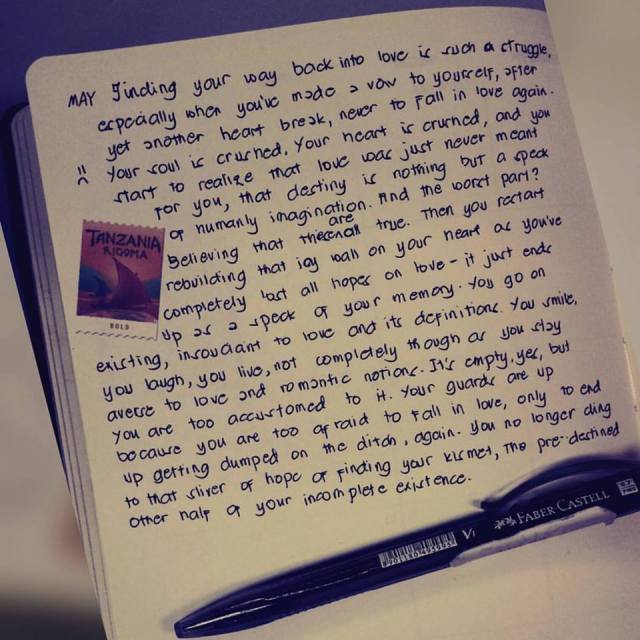 MAY Finding your way back into love is such a struggle,
especially when you've made a vow to yourself, after
yet another heart break, never to fall in love again.
Your soul is crushed, your heart is crushed, and you
start to realize that love was just never meant
for you, that destiny is nothing but a speck
of humanly imagination. And the worst part?
Believing that these are all true. Then you restart
rebuilding that icy wall on your heart as you've
completely lost all hopes on love - it just ends
up as a speck of your memory. You go on
existing, insouciant to love and its definitions. You smile,
you laugh, you live, not completely though as you stay
averse to love and romantic notions. It's empty, yes, but
you are too accustomed to it. Your guards are up
because you are too afraid to fall in love, only to end
up getting dumped on the ditch, again. You no longer cling
to that sliver of hope of finding your kismet, the pre-destined
other half of your incomplete existence.
TANZANIA
KIGOMA
BOLD
FABER-CASTELL